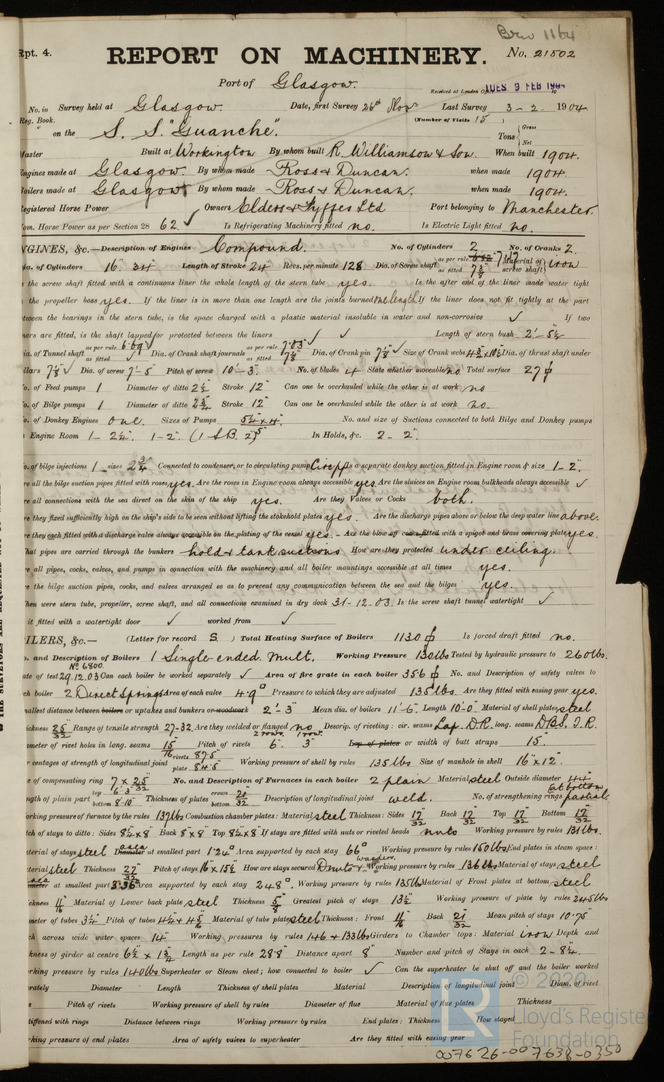 Brw 1164
Rpt. 4. REPORT ON MACHINERY. No. 21502
Port of Glasgow.
Received at London TUES 9 FEB 1904
No. in Survey held at Glasgow. Date, first Survey 26th Nov Last Survey 3-2- 1904
Reg. Book. (Number of Visits 15)
on the S. S. "Guanche". Tons Gross Net
Master Built at Workington By whom built R. Williamson & Son. When built 1904.
Engines made at Glasgow. By whom made Ross & Duncan. when made 1904.
Boilers made at Glasgow By whom made Ross & Duncan. when made 1904.
Registered Horse Power Owners Elders & Fyffes Ltd Port belonging to Manchester
Nom. Horse Power as per Section 28 62 Is Refrigerating Machinery fitted no. Is Electric Light fitted no.
ENGINES, &c.—Description of Engines Compound. No. of Cylinders 2 No. of Cranks 2.
Dia. of Cylinders 16" 34" Length of Stroke 24 Revs. per minute 128 Dia. of Screw shaft as per rule as fitted 7 3/8" Material of screw shaft iron
Is the screw shaft fitted with a continuous liner the whole length of the stern tube yes. Is the after end of the liner made water tight
in the propeller boss yes. If the liner is in more than one length are the joints burned If the liner does not fit tightly at the part
between the bearings in the stern tube, is the space charged with a plastic material insoluble in water and non-corrosive ✓ If two
liners are fitted, is the shaft lapped or protected between the liners ✓ Length of stern bush 2'-5½
Dia. of Tunnel shaft as per rule 6.69 as fitted Dia. of Crank shaft journals as per rule 7.03 as fitted 7⅛ Dia. of Crank pin 7⅛ Size of Crank webs 4½ x 10½ Dia. of thrust shaft under
collars 7⅛ Dia. of screw 7'-5 Pitch of screw 10'-3" No. of blades 4 State whether moveable no Total surface 27 ф
No. of Feed pumps 1 Diameter of ditto 2½ Stroke 12" Can one be overhauled while the other is at work no
No. of Bilge pumps 1 Diameter of ditto 2¾ Stroke 12" Can one be overhauled while the other is at work no.
No. of Donkey Engines one. Sizes of Pumps 5½ x 4" No. and size of Suctions connected to both Bilge and Donkey pumps
In Engine Room 1-2½" 1-2" (1 S.B. 2") In Holds, &c. 2-2"
No. of bilge injections 1 sizes 2¾ Connected to condenser, or to circulating pump Circ. p. Is a separate donkey suction fitted in Engine room & size 1-2".
Are all the bilge suction pipes fitted with roses yes. Are the roses in Engine room always accessible yes. Are the sluices on Engine room bulkheads always accessible ✓
Are all connections with the sea direct on the skin of the ship yes. Are they Valves or Cocks both.
Are they fixed sufficiently high on the ship's side to be seen without lifting the stokehold plates yes. Are the discharge pipes above or below the deep water line above.
Are they each fitted with a discharge valve always accessible on the plating of the vessel yes. Are the blow off cocks fitted with a spigot and brass covering plate yes.
What pipes are carried through the bunkers hold & tank suctions How are they protected under ceiling.
Are all pipes, cocks, valves, and pumps in connection with the machinery and all boiler mountings accessible at all times yes.
Are the bilge suction pipes, cocks, and valves arranged so as to prevent any communication between the sea and the bilges yes.
When were stern tube, propeller, screw shaft, and all connections examined in dry dock 31-12-03. Is the screw shaft tunnel watertight ✓
Is it fitted with a watertight door ✓ worked from ✓
BOILERS, &c.— (Letter for record S.) Total Heating Surface of Boilers 1130 ф Is forced draft fitted no.
No. and Description of Boilers 1 Single-ended Mult. Working Pressure 130 lbs. Tested by hydraulic pressure to 260 lbs.
No 6800.
Date of test 29.12.03 Can each boiler be worked separately ✓ Area of fire grate in each boiler 35.6 ф No. and Description of safety valves to
each boiler 2 Direct Spring Area of each valve 4.9" Pressure to which they are adjusted 135 lbs. Are they fitted with easing gear yes.
Smallest distance between boilers or uptakes and bunkers or woodwork 2'-3" Mean dia. of boilers 11'-6" Length 10'-0" Material of shell plates steel
Thickness 25/32 Range of tensile strength 27-32 Are they welded or flanged no Descrip. of riveting: cir. seams Lap. D.R. long. seams D.B.S. T.R.
Diameter of rivet holes in long. seams 15/16 Pitch of rivets 6" 3" Lap of plates or width of butt straps 15"
Per centages of strength of longitudinal joint rivets 87.5 plate 84.5 Working pressure of shell by rules 135 lbs Size of manhole in shell 16" x 12".
Size of compensating ring 7 x 25/32 No. and Description of Furnaces in each boiler 2 plain Material steel Outside diameter 44" at bottom
Length of plain part top bottom Thickness of plates crown bottom 21/32 Description of longitudinal joint weld. No. of strengthening rings partial
Working pressure of furnace by the rules 137 lbs Combustion chamber plates: Material steel Thickness: Sides 17/32 Back 17/32 Top 17/32 Bottom 17/32
Pitch of stays to ditto: Sides 8½ x 8 Back 8" x 8" Top 8½ x 8" If stays are fitted with nuts or riveted heads nuts Working pressure by rules 131 lbs.
Material of stays steel area at smallest part 1.24" Area supported by each stay 66" Working pressure by rules 150 lbs End plates in steam space:
Material steel Thickness 27/32 Pitch of stays 16 x 15½ How are stays secured D nuts & washers Working pressure by rules 136 lbs Material of stays steel
area at smallest part 3.36 Area supported by each stay 248" Working pressure by rules 135 lbs Material of Front plates at bottom steel
Thickness 11/16 Material of Lower back plate steel Thickness 5/8 Greatest pitch of stays 13½ Working pressure of plate by rules 245 lbs
Diameter of tubes 3½" Pitch of tubes Material of tube plates steel Thickness: Front 11/16 Back 21/32 Mean pitch of stays 10.75
Pitch across wide water spaces 14" Working pressures by rules 146 & 133 lbs Girders to Chamber tops: Material iron Depth and
thickness of girder at centre 6½ x 1¾ Length as per rule 28.8" Distance apart 8" Number and pitch of Stays in each 2-8½.
Working pressure by rules 140 lbs Superheater or Steam chest; how connected to boiler ✓ Can the superheater be shut off and the boiler worked
separately Diameter Length Thickness of shell plates Material Description of longitudinal joint Diam. of rivet
holes Pitch of rivets Working pressure of shell by rules Diameter of flue Material of flue plates Thickness
If stiffened with rings Distance between rings Working pressure by rules End plates: Thickness How stayed
Working pressure of end plates Area of safety valves to superheater Are they fitted with easing gear
© 2020
Lloyd's Register
Foundation
007626-007638-0350